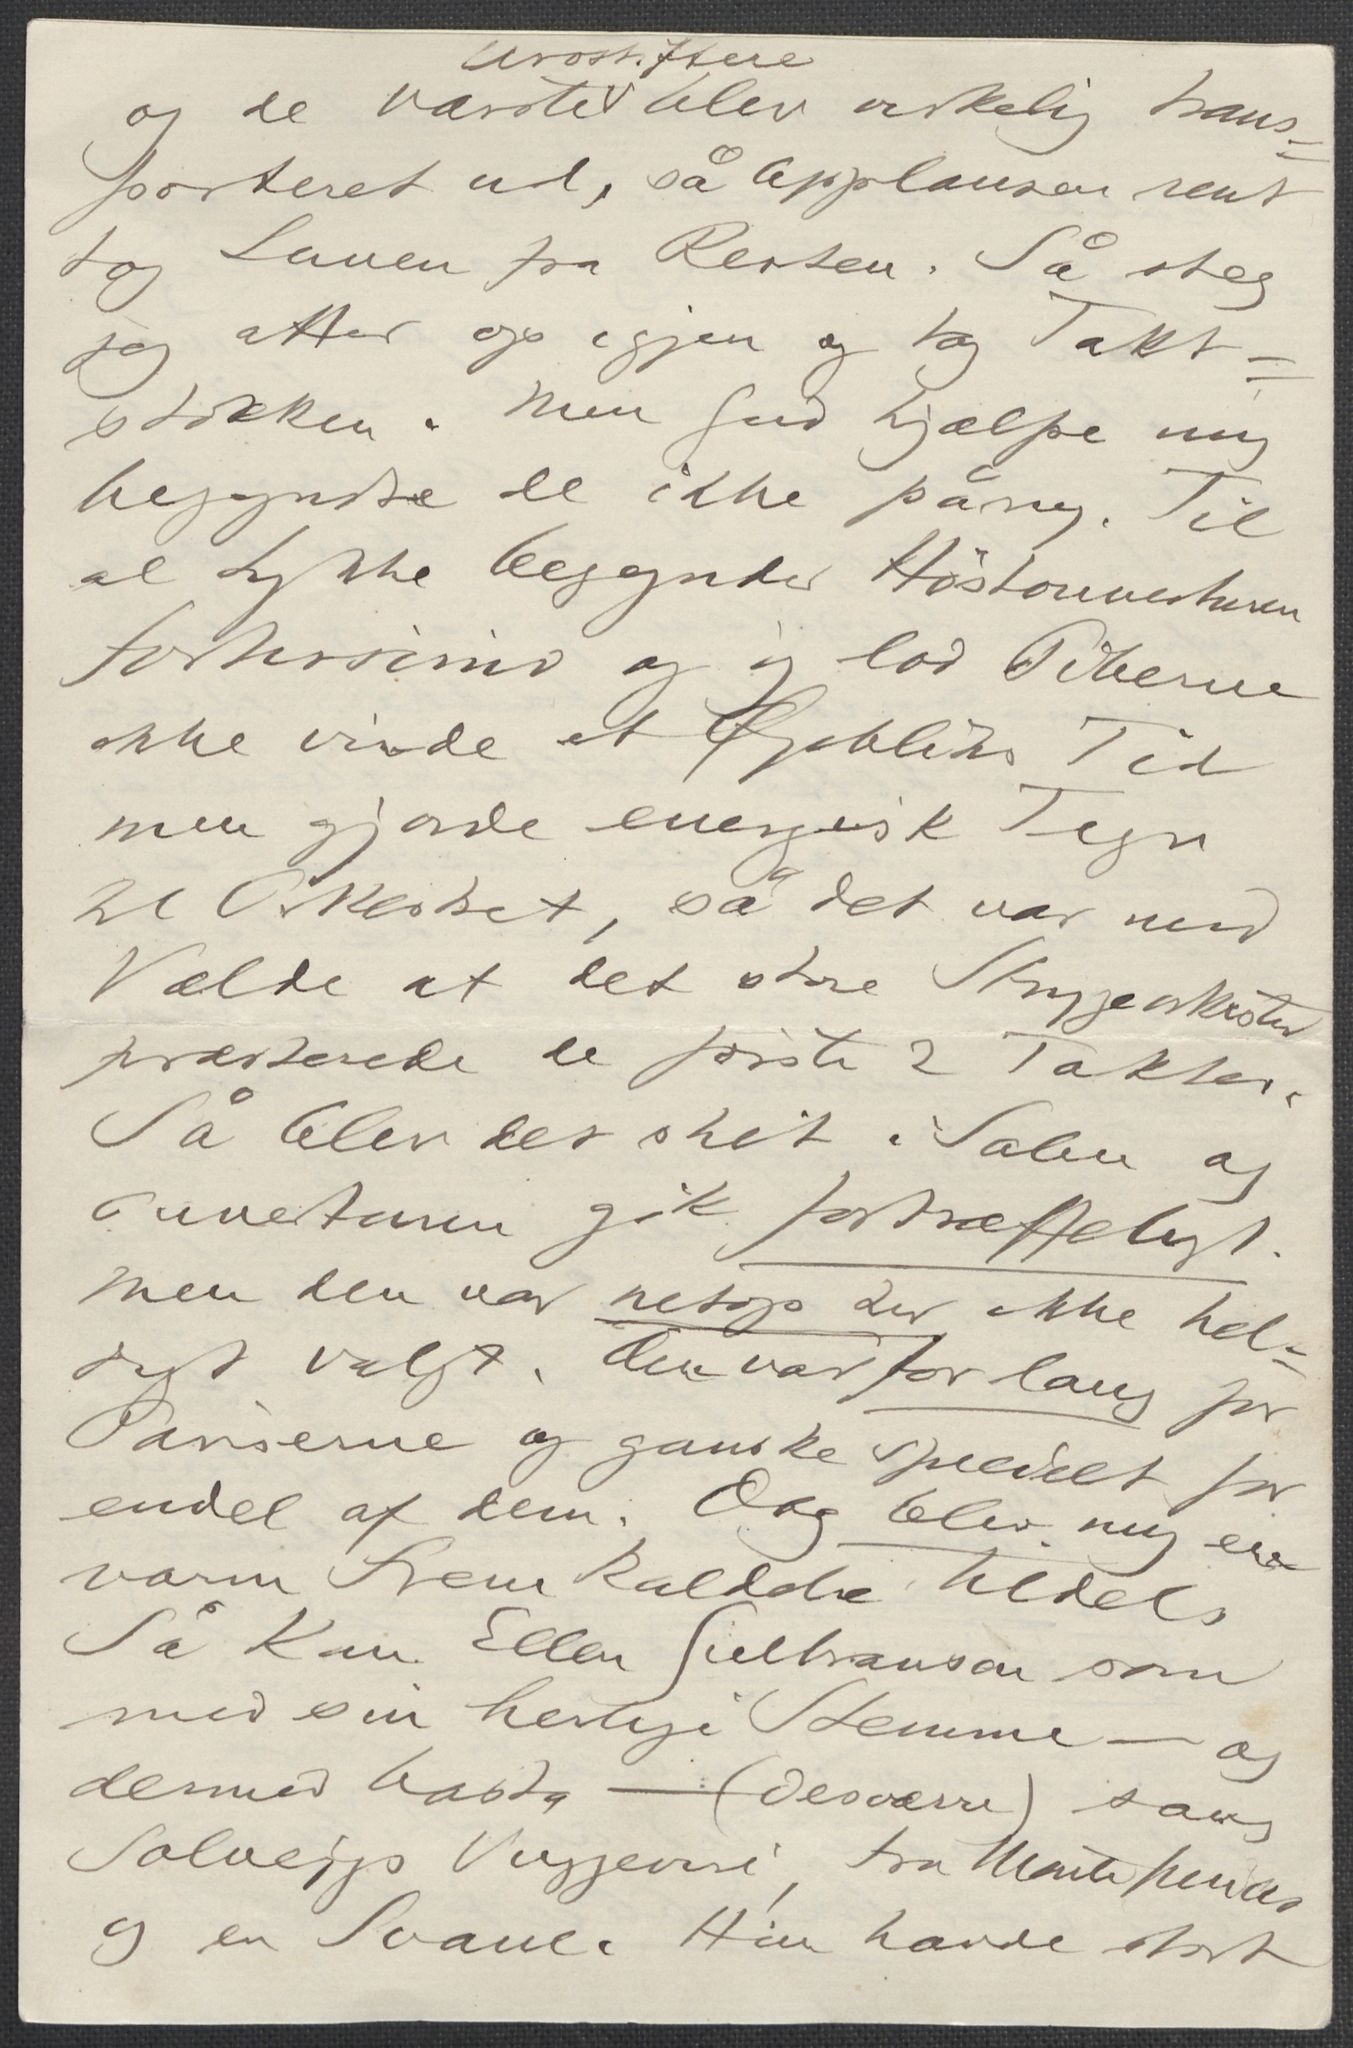 Urostiftere
og de værste blev virkelig trans-
porteret ud, så Applausen rent
tog Luven fra Resten. Så steg
jeg atter op igjen og tog Takt-
stokken. Men Gud hjælpe mig
begyndte de ikke påny. Til
al Lykke begynder Höstouverturen
fortissimo og jeg lod Piberne
ikke vinde et Øjebliks Tid
men gjorde energisk Tegn
til Orkestret, så det var med
Vælde at det store Strygeorkester
præsterede de første 2 Takter.
Så blev det stilt i Salen og
Ouverturen gik fortræffeligt.
Men den var netop der ikke hel-
digt valgt. Den var for lang for
Pariserne og ganske specielt for
endel af dem. Dog blev mig en
varm Fremkaldelse tildels
Så kom Ellen Gulbranson som
med sin herlige Stemme — og
dermed basta — (desværre) sang
Solvejgs Vuggevise, fra Monte Pincio
og en Svane. Hun havde stort